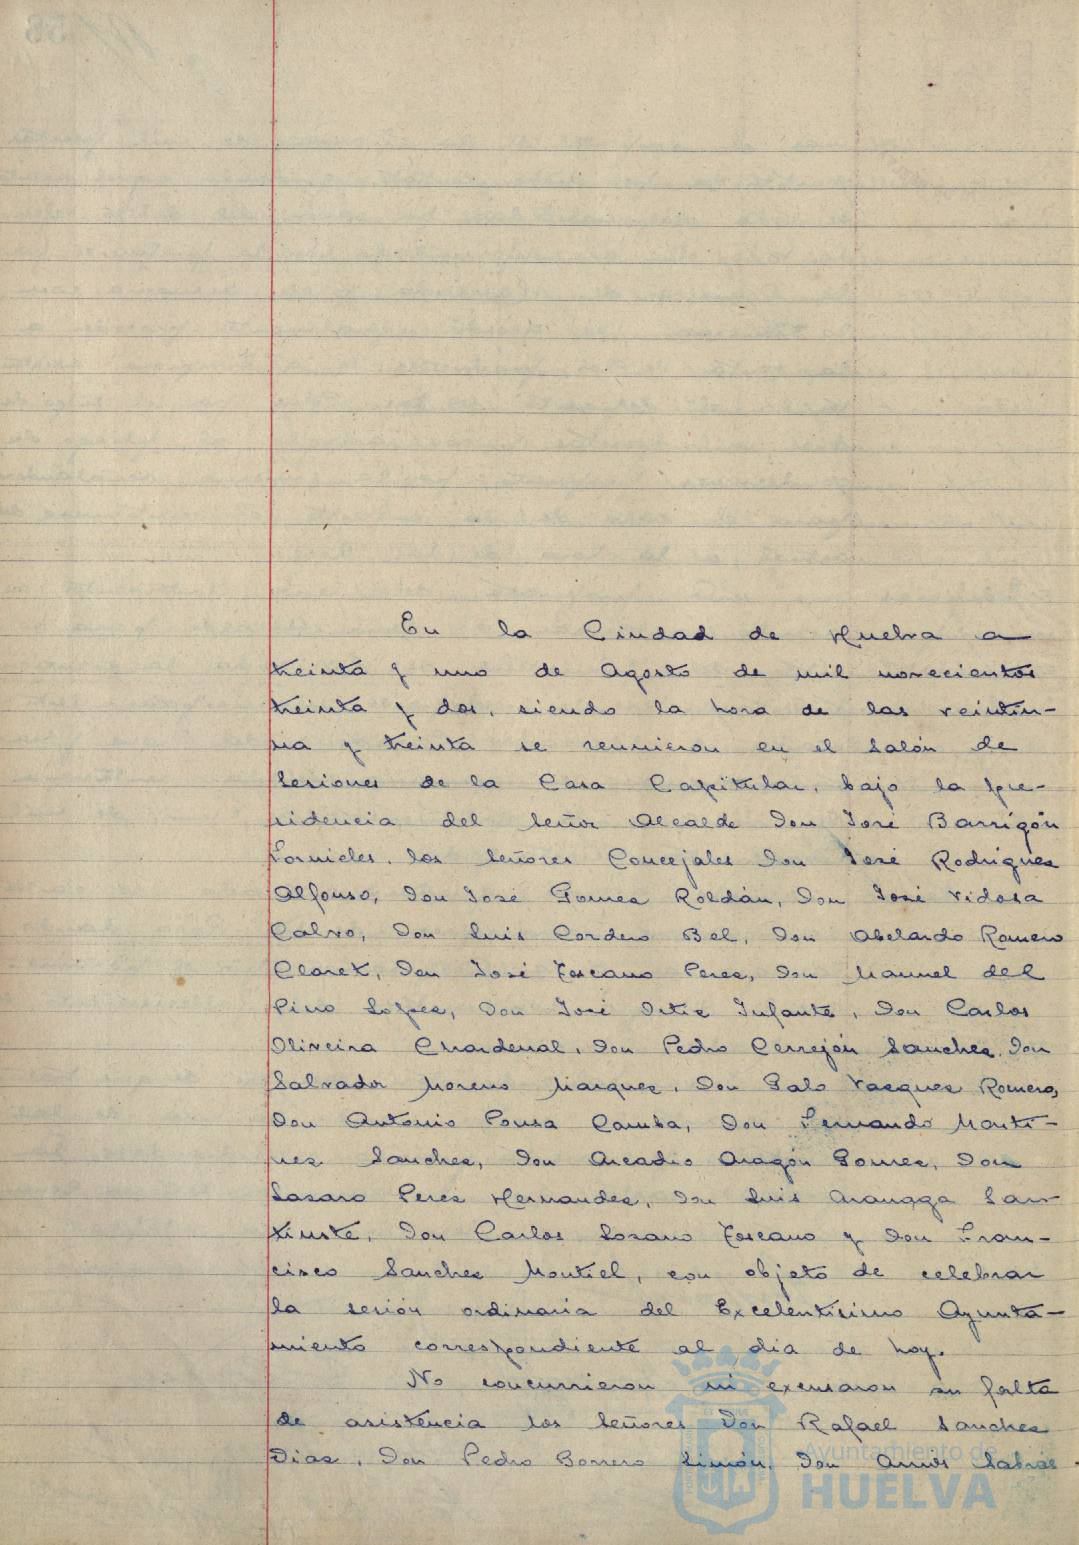 En la Ciudad de Huelva a
treinta y uno de Agosto de mil novecientos
treinta y dos, siendo la hora de las veintiu-
na y treinta se reunieron en el Salón de
Sesiones de la Casa Capitular, bajo la pre-
sidencia del Señor Alcalde Don José Barrigón
Fornieles, los Señores Concejales Don José Rodriguez
Alfonso, Don José Gomez Roldán, Don José Vidosa
Calvo, Don Luis Cordero Bel, Don Abelardo Romero
Claret, Don José Toscano Perez, Don Manuel del
Pino Lopez, Don José Ortiz Infante, Don Carlos
Oliveira Chardenal, Don Pedro Cerrejón Sanchez, Don
Salvador Moreno Marquez, Don Galo Vazquez Romero,
Don Antonio Pousa Camba, Don Fernando Marti-
nez Sanchez, Don Arcadio Aragón Gomez, Don
Lazaro Perez Hernandez, Don Luis Aranaga San
Don Carlos Lozano Toscano y Don Fran-
cisco Sanchez Montiel, con objeto de celebrar
la sesión ordinaria del Excelentísimo Ayunta-
miento correspondiente al dia de hoy.
No concurrieron ni excusaron su falta
de asistencia los Señores Don Rafael Sanchez
Diaz, Don Pedro Borrero Limón, Don Amós Sabrás
Ayuntamiento de
HUELVA